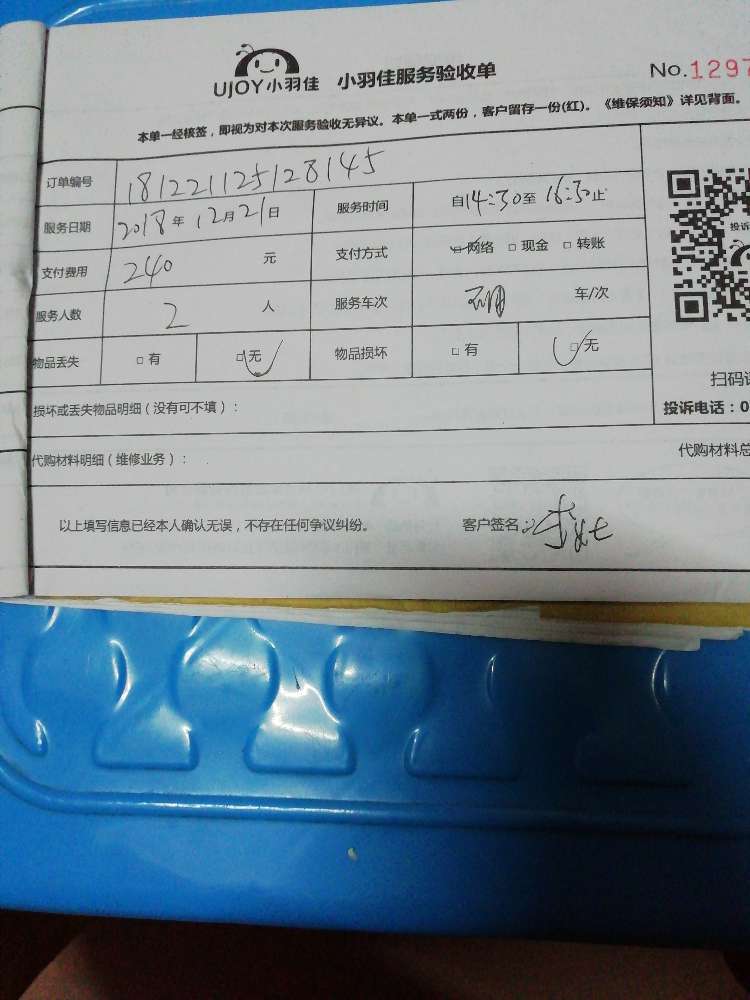 UJOY小羽佳 小羽佳服务验收单
No.1297
本单一经核签，即视为对本次服务验收无异议。本单一式两份，客户留存一份(红)。《维保须知》详见背面。
订单编号 181221125128145
服务日期 2018年12月21日 服务时间 自14:30至16:30止
支付费用 240元 支付方式 □网络 □现金 □转账
服务人数 2人 服务车次 车/次
物品丢失 □有 □无 物品损坏 □有 □无
投诉
扫码
损坏或丢失物品明细（没有可不填）：
投诉电话：0
代购材料明细（维修业务）：
代购材料总
以上填写信息已经本人确认无误，不存在任何争议纠纷。 客户签名：